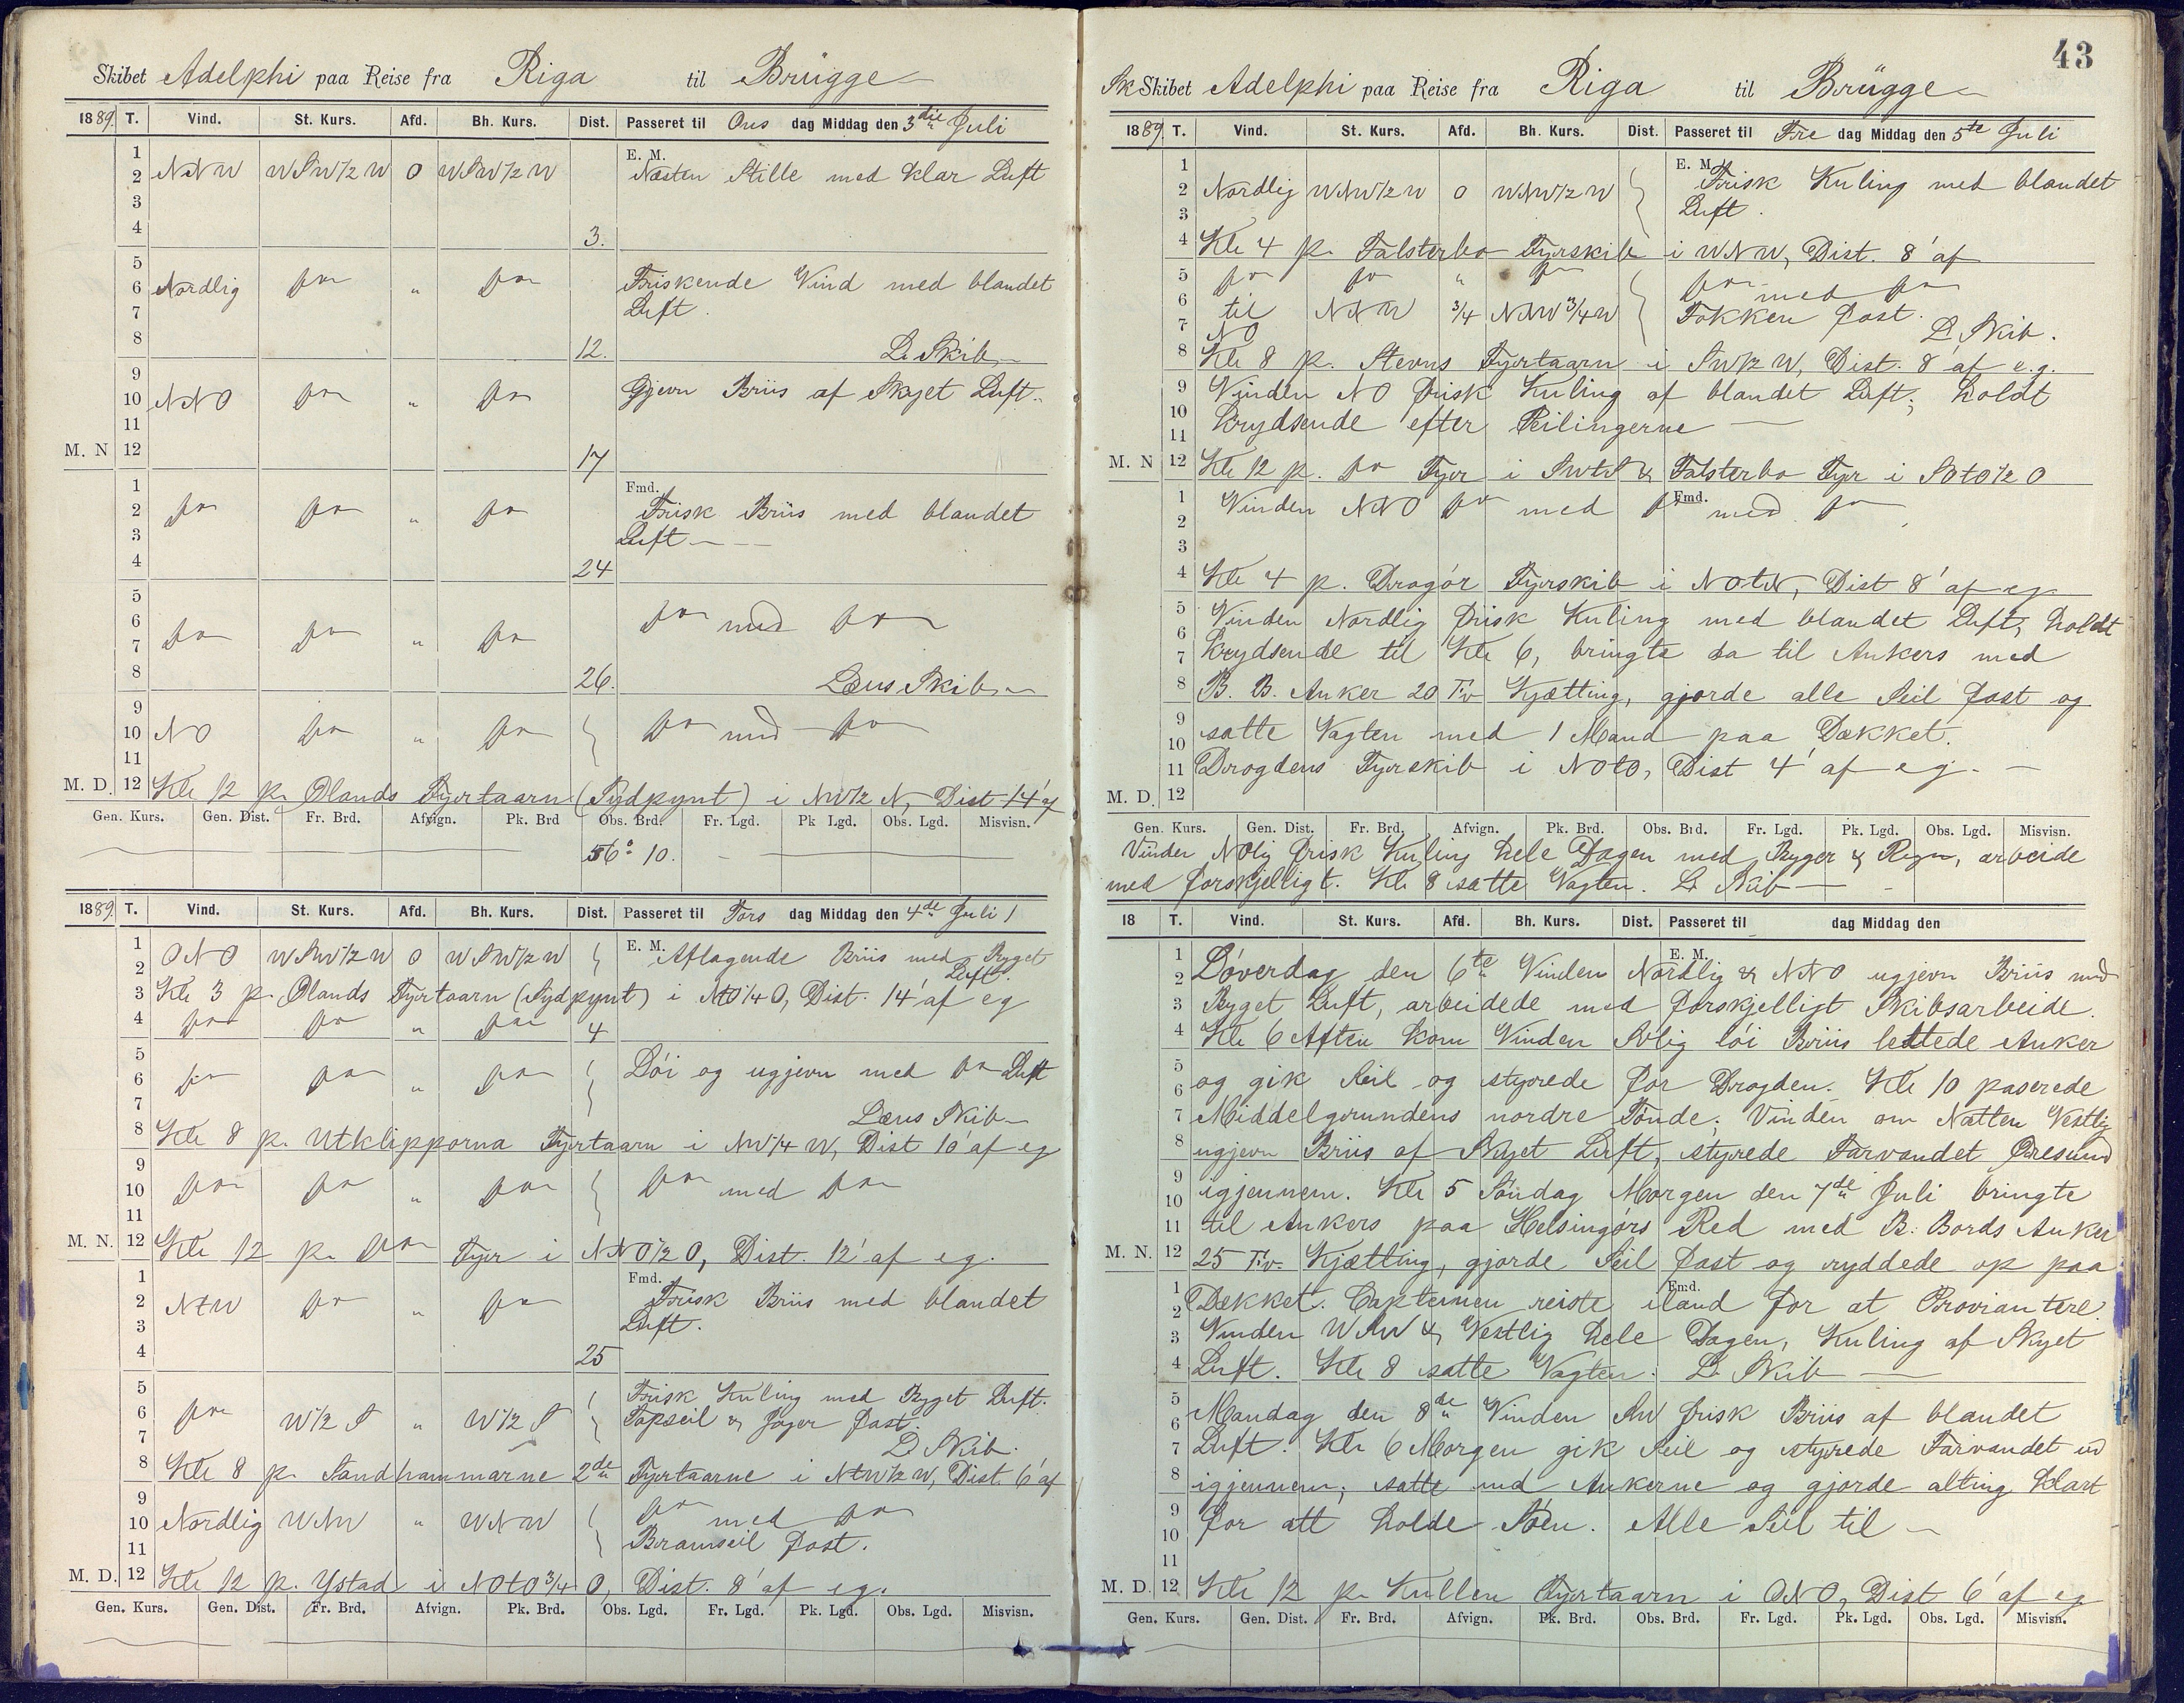 Skibet Adelphi paa Reise fra Riga til Brügge
1889. T. Vind. St. Kurs. Afd. Bh. Kurs. Dist. Passeret til Ons dag Middag den 3die Juli
1 E. M.
2 NNW WSW½W 0 WSW½W Næsten Stille med klar Luft
3
4 3.
5
6 Nordlig do " do Friskende Vind med blandet
7 Luft.
8 12. L. Skib
9
10 NNO do " do Gjevn Briis af Skyet Luft.
11
M. N 12 17
1 Fmd.
2 do do " do Frisk Briis med blandet
3 Luft
4 24
5
6 do do " do do med do
7
8 26. Læns Skib
9
10 NO do " do do med do
11
M. D. 12 Kl 12 p. Ølands Fyrtaarn (Sydpynt) i NW½N, Dist 14' af
Gen. Kurs. Gen. Dist. Fr. Brd. Afvign. Pk. Brd Obs. Brd. Fr. Lgd. Pk Lgd. Obs. Lgd. Misvisn.
56° 10.
1889. T. Vind. St. Kurs. Afd. Bh. Kurs. Dist. Passeret til Tors dag Middag den 4de Juli
1 ONO WSW½W 0 WSW½W E. M. Aflagende Briis med Byget
2 Luft.
3 Kl 3 p. Ølands Fyrtaarn (Sydpynt) i NtO¼O, Dist. 14' af eg
4 do do " do 4
5
6 do do " do Löi og ugjevn med do Luft
7 Læns Skib
8 Kl 8 p. Utklipporna Fyrtaarn i NW¼W, Dist 10' af eg
9
10 do do " do do med do
11
M. N. 12 Kl 12 p. do Fyr i NNO½O, Dist. 12' af eg.
1 Fmd.
2 NtW do " do Frisk Briis med blandet
3 Luft.
4 25
5 Frisk Kuling med Byget Luft.
6 do W½S " W½S Topseil & Jager fast.
7 L. Skib.
8 Kl 8 p. Sandhammarne 2de Fyrtaarne i NtW½W, Dist. 6' af
9 do med do
10 Nordlig WNW " WNW
11 Bramseil fast.
M. D. 12 Kl 12 p. Ystad i NOtO¾O, Dist. 8' af eg.
Gen. Kurs. Gen. Dist. Fr. Brd. Afvign. Pk. Brd. Obs. Lgd. Fr. Lgd. Pk. Lgd. Obs. Lgd. Misvisn.
43
Sk Skibet Adelphi paa Reise fra Riga til Brügge
1889 T. Vind. St. Kurs. Afd. Bh. Kurs. Dist. Passeret til Fre dag Middag den 5te Juli
1 E. M.
2 Nordlig WNW½W 0 WNW½W Frisk Kuling med blandet
3 Luft.
4 Kl 4 p. Falsterbo Fyrskib i WNW, Dist. 8' af
5 do do " do do med do
6 til NNW ¾ NNW¾W Fokken fast.
7 NO L. Skib.
8 Kl 8 p. Stevns Fyrtaarn i SW½W, Dist. 8' af e.g.
9 Vinden NO frisk Kuling af blandet Luft; holdt
10 krydsende efter Peilingerne
11
M. N 12 Kl 12 p. do Fyr i SWtS & Falsterbo Fyr i SOtO½O
1 Vinden NNO do med do Fmd. med do
2
3
4 Kl 4 p. Dragör Fyrskib i NOtN, Dist 8' af eg
5 Vinden Nordlig frisk Kuling med blandet Luft, holdt
6
7 krydsende til Kl 6, bringte da til Ankers med
8 B. B. Anker 20 Fv Kjætting, gjorde alle Seil fast og
9 satte Vagten med 1 Mand paa Dækket.
10
11 Drogdens Fyrskib i NOtO, Dist 4' af eg.
M. D. 12
Gen. Kurs. Gen. Dist. Fr. Brd. Afvign. Pk. Brd. Obs. Brd. Fr. Lgd. Pk. Lgd. Obs. Lgd. Misvisn.
Vinden NOlig frisk Kuling hele Dagen med Byger & Regn, arbeide
med forskjelligt. Kl 8 satte Vagten. L. Skib
18 T. Vind. St. Kurs. Afd. Bh. Kurs. Dist. Passeret til dag Middag den
1 E. M.
2 Löverdag den 6te Vinden Nordlig & NNO ugjevn Briis med
3 Byget Luft, arbeidede med forskjelligt Skibsarbeide.
4 Kl 6 Aften kom Vinden SOlig löi Briis lettede Anker
5
6 og gik Seil og styrede for Drogden. Kl 10 paserede
7 Middelgrundens nordre Tönde; Vinden om Natten Vestlig
8 ugjevn Briis af Skyet Luft, styrede Farvandet Öresund
9
10 igjennem. Kl 5 Söndag Morgen den 7de Juli bringte
11 til Ankers paa Helsingörs Red med B. Bords Anker
M. N. 12 25 Fv. Kjætting, gjorde Seil fast og ryddede op paa
1 Fmd.
2 Dækket. Capteinen reiste iland for at Proviantere
3 Vinden WNW & Vestlig hele Dagen, Kuling af Skyet
4 Luft. Kl 8 satte Vagten. L. Skib
5
6 Mandag den 8de Vinden SW frisk Briis af blandet
7 Luft. Kl 6 Morgen gik Seil og styrede Farvandet ud
8 igjennem; satte ind Ankerne og gjorde alting klart
9
10 for att holde Söen. Alle Seil til
11
M. D. 12 Kl 12 p. Kullen Fyrtaarn i ONO, Dist 6' af eg
Gen. Kurs. Gen. Dist. Fr. Brd. Afvign. Pk. Brd. Obs. Brd. Fr. Lgd. Pk. Lgd. Obs. Lgd. Misvisn.